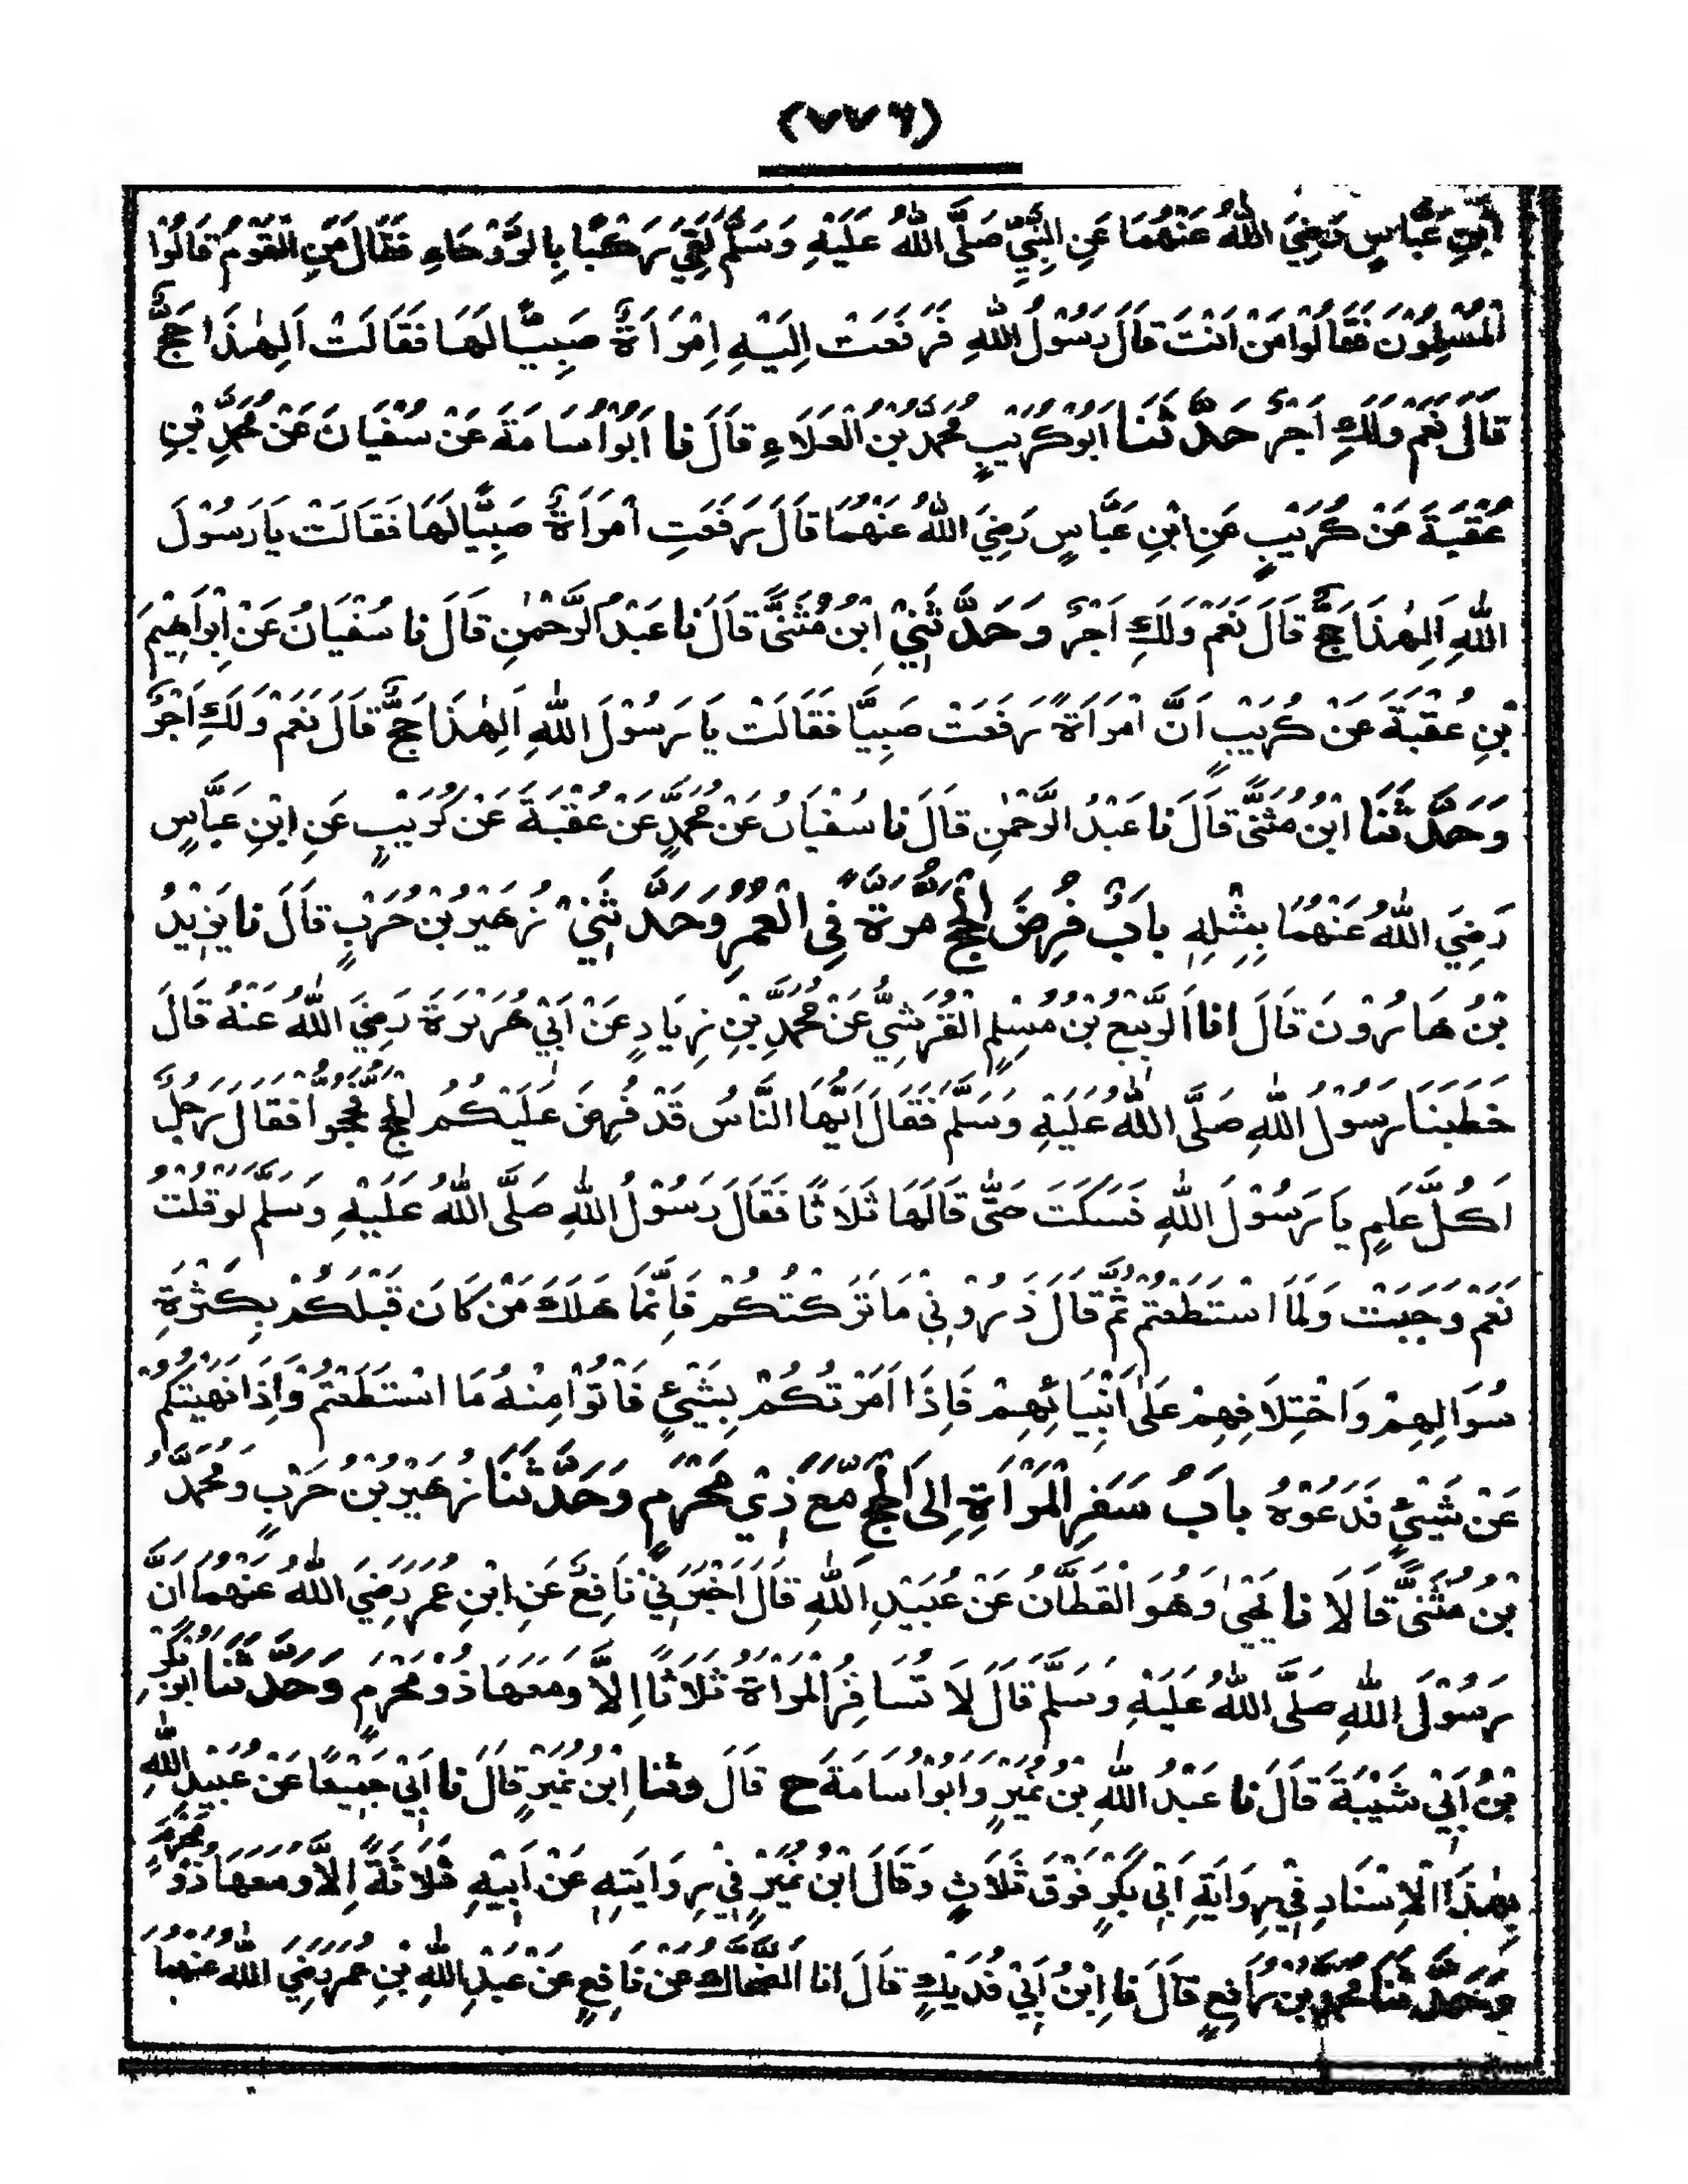 (٧٧٦)
ابْنِ عَبَّاسٍ رَضِيَ اللّٰهُ عَنْهُمَا عَنِ النَّبِيِّ صَلَّى اللّٰهُ عَلَيْهِ وَسَلَّمَ لَقِيَ رَكْبًا بِالرَّوْحَاءِ فَقَالَ مَنِ الْقَوْمُ قَالُوْا
الْمُسْلِمُوْنَ فَقَالُوْا مَنْ اَنْتَ قَالَ رَسُوْلُ اللّٰهِ فَرَفَعَتْ اِلَيْهِ اِمْرَاَةٌ صَبِيًّا لَهَا فَقَالَتْ اَلِهٰذَا حَجٌّ
قَالَ نَعَمْ وَلَكِ اَجْرٌ حَدَّثَنَا اَبُوْ كُرَيْبٍ مُحَمَّدُ بْنُ الْعَلَاءِ قَالَ نَا اَبُوْ اُسَامَةَ عَنْ سُفْيَانَ عَنْ مُحَمَّدِ بْنِ
عُقْبَةَ عَنْ كُرَيْبٍ عَنِ ابْنِ عَبَّاسٍ رَضِيَ اللّٰهُ عَنْهُمَا قَالَ رَفَعَتِ امْرَاَةٌ صَبِيًّا لَهَا فَقَالَتْ يَا رَسُوْلَ
اللّٰهِ اَلِهٰذَا حَجٌّ قَالَ نَعَمْ وَلَكِ اَجْرٌ وَحَدَّثَنِيْ ابْنُ مُثَنّٰى قَالَ نَا عَبْدُ الرَّحْمٰنِ قَالَ نَا سُفْيَانُ عَنْ اِبْرَاهِيْمَ
بْنِ عُقْبَةَ عَنْ كُرَيْبٍ اَنَّ امْرَاَةً رَفَعَتْ صَبِيًّا فَقَالَتْ يَا رَسُوْلَ اللّٰهِ اَلِهٰذَا حَجٌّ قَالَ نَعَمْ وَلَكِ اَجْرٌ
وَحَدَّثَنَا ابْنُ مُثَنّٰى قَالَ نَا عَبْدُ الرَّحْمٰنِ قَالَ نَا سُفْيَانُ عَنْ مُحَمَّدٍ عَنْ عُقْبَةَ عَنْ كُرَيْبٍ عَنِ ابْنِ عَبَّاسٍ
رَضِيَ اللّٰهُ عَنْهُمَا بِمِثْلِهِ بَابُ فُرِضَ الْحَجُّ مَرَّةً فِي الْعُمُرِ وَحَدَّثَنِيْ زُهَيْرُ بْنُ حَرْبٍ قَالَ نَا يَزِيْدُ
بْنُ هَارُوْنَ قَالَ انا الرَّبِيْعُ بْنُ مُسْلِمٍ الْقُرَشِيُّ عَنْ مُحَمَّدِ بْنِ زِيَادٍ عَنْ اَبِيْ هُرَيْرَةَ رَضِيَ اللّٰهُ عَنْهُ قَالَ
خَطَبَنَا رَسُوْلُ اللّٰهِ صَلَّى اللّٰهُ عَلَيْهِ وَسَلَّمَ فَقَالَ اَيُّهَا النَّاسُ قَدْ فُرِضَ عَلَيْكُمُ الْحَجُّ فَحُجُّوْا فَقَالَ رَجُلٌ
اَكُلَّ عَامٍ يَا رَسُوْلَ اللّٰهِ فَسَكَتَ حَتّٰى قَالَهَا ثَلَاثًا فَقَالَ رَسُوْلُ اللّٰهِ صَلَّى اللّٰهُ عَلَيْهِ وَسَلَّمَ لَوْ قُلْتُ
نَعَمْ وَجَبَتْ وَلَمَا اسْتَطَعْتُمْ ثُمَّ قَالَ ذَرُوْنِيْ مَا تَرَكْتُكُمْ فَاِنَّمَا هَلَكَ مَنْ كَانَ قَبْلَكُمْ بِكَثْرَةِ
سُوَالِهِمْ وَاخْتِلَافِهِمْ عَلٰى اَنْبِيَائِهِمْ فَاِذَا اَمَرْتُكُمْ بِشَيْئٍ فَاْتُوْا مِنْهُ مَا اسْتَطَعْتُمْ وَاِذَا نَهَيْتُكُمْ
عَنْ شَيْئٍ فَدَعُوْهُ بَابُ سَفَرِ الْمَرْاَةِ اِلَى الْحَجِّ مَعَ ذِيْ مَحْرَمٍ وَحَدَّثَنَا زُهَيْرُ بْنُ حَرْبٍ وَمُحَمَّدُ
بْنُ مُثَنّٰى قَالَا نَا يَحْيٰى وَهُوَ الْقَطَّانُ عَنْ عُبَيْدِ اللّٰهِ قَالَ اَخْبَرَنِيْ نَافِعٌ عَنِ ابْنِ عُمَرَ رَضِيَ اللّٰهُ عَنْهُمَا اَنَّ
رَسُوْلَ اللّٰهِ صَلَّى اللّٰهُ عَلَيْهِ وَسَلَّمَ قَالَ لَا تُسَافِرُ الْمَرْاَةُ ثَلَاثًا اِلَّا وَمَعَهَا ذُوْ مَحْرَمٍ وَحَدَّثَنَا اَبُوْ بَكْرِ
بْنُ اَبِيْ شَيْبَةَ قَالَ نَا عَبْدُ اللّٰهِ بْنُ نُمَيْرٍ وَاَبُوْ اُسَامَةَ ح قَالَ وثنا ابْنُ نُمَيْرٍ قَالَ نَا اَبِيْ جَمِيْعًا عَنْ عُبَيْدِ اللّٰهِ
بِهٰذَا الْاِسْنَادِ فِيْ رِوَايَةِ اَبِيْ بَكْرٍ فَوْقَ ثَلَاثٍ وَقَالَ ابْنُ نُمَيْرٍ فِيْ رِوَايَتِهِ عَنْ اَبِيْهِ ثَلَاثَةً اِلَّا وَمَعَهَا ذُوْ مَحْرَمٍ
وَحَدَّثَنَا مُحَمَّدُ بْنُ رَافِعٍ قَالَ نَا ابْنُ اَبِيْ فُدَيْكٍ قَالَ انا الضَّحَّاكُ عَنْ نَافِعٍ عَنْ عَبْدِ اللّٰهِ بْنِ عُمَرَ رَضِيَ اللّٰهُ عَنْهُمَا